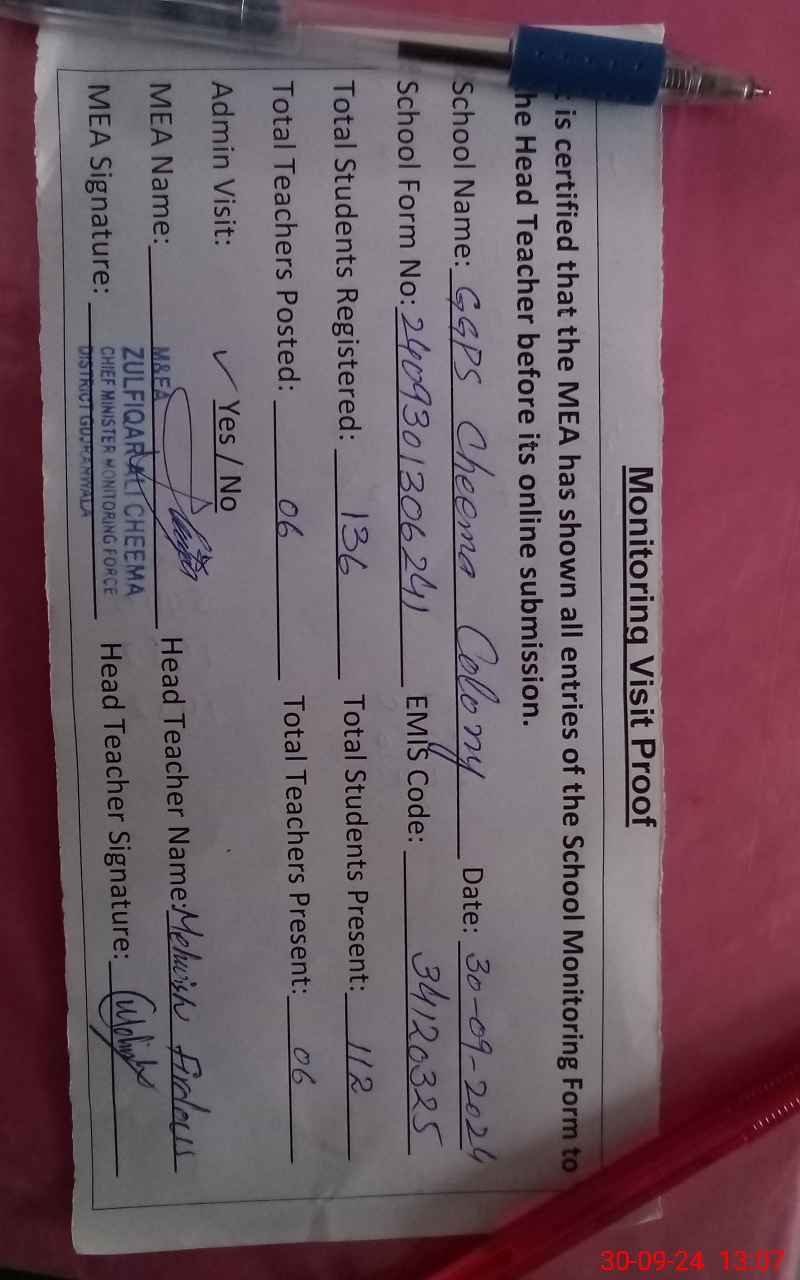 Monitoring Visit Proof
is certified that the MEA has shown all entries of the School Monitoring Form to
he Head Teacher before its online submission.
School Name: GGPS Cheema Colony Date: 30-09-2024
School Form No: 2409301306241 EMIS Code: 34120325
Total Students Registered: 136 Total Students Present: 112
Total Teachers Posted: 06 Total Teachers Present: 06
Admin Visit: ✓ Yes / No
MEA Name: Head Teacher Name: Mehwish Firdous
MEA Signature: Head Teacher Signature:
M&EA
ZULFIQAR ALI CHEEMA
CHIEF MINISTER MONITORING FORCE
DISTRICT GUJRANWALA
30-09-24 13:07